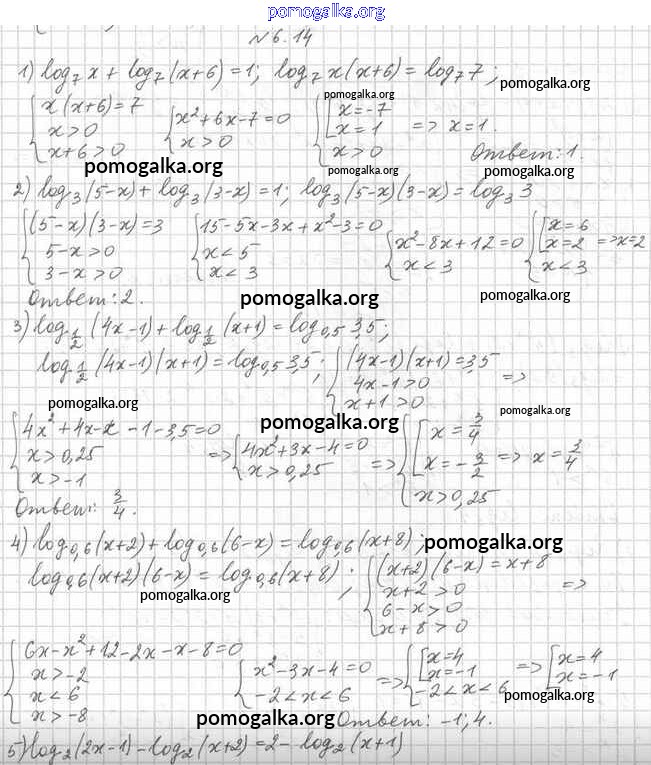 pomogalka.org
№6.14
1) log₇ x + log₇ (x+6) = 1; log₇ x(x+6) = log₇ 7; pomogalka.org
pomogalka.org
{ x(x+6) = 7 { x²+6x-7=0 { [ x=-7
x>0 x>0 x=1 => x=1.
x+6>0 x>0 Ответ: 1.
pomogalka.org pomogalka.org pomogalka.org
2) log₃ (5-x) + log₃ (3-x) = 1; log₃ (5-x)(3-x) = log₃ 3
{ (5-x)(3-x)=3 { 15-5x-3x+x²-3=0 { x²-8x+12=0 { [ x=6
5-x>0 x<5 x<3 x=2 =>x=2
3-x>0 x<3 x<3
Ответ: 2. pomogalka.org pomogalka.org
3) log_1/2 (4x-1) + log_1/2 (x+1) = log₀,₅ 3,5;
log_1/2 (4x-1)(x+1) = log₀,₅ 3,5; { (4x-1)(x+1)=3,5
4x-1>0 =>
x+1>0
pomogalka.org pomogalka.org pomogalka.org
{ 4x²+4x-x-1-3,5=0 => { 4x²+3x-4=0 => { [ x=3/4
x>0,25 x>0,25 x=-3/2 => x=3/4
x>-1 x>0,25
Ответ: 3/4.
4) log₀,₆(x+2)+log₀,₆(6-x) = log₀,₆(x+8); pomogalka.org
log₀,₆(x+2)(6-x) = log₀,₆(x+8); { (x+2)(6-x)=x+8
x+2>0 =>
6-x>0
x+8>0
pomogalka.org
{ 6x-x²+12-2x-x-8=0 { x²-3x-4=0 => { [ x=4 => [ x=4
x>-2 -2<x<6 x=-1 x=-1
x<6 -2<x<6
x>-8
pomogalka.org
pomogalka.org Ответ: -1; 4.
5) log₂(2x-1)-log₂(x+2)=2-log₂(x+1)